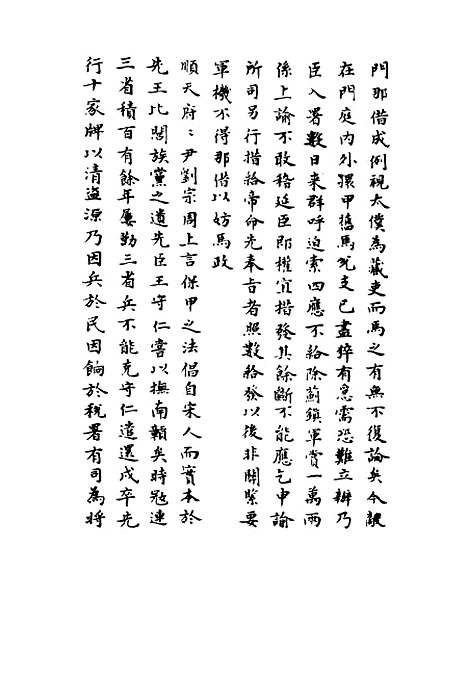 門那借成例視太僕為藏吏而馬之有無不復論矣今賊
在門庭内外環甲舊馬兌支已盡猝有急需恐難立辦乃
臣入署數日来群呼迫索四應不給除薊鎮軍賞一萬兩
係上諭不敢稽延臣即權宜措發其餘斷不能應乞申諭
所司另行措給帝命先奉旨者照數給發以後非關緊要
軍機不得那借以妨馬政
順天府〻尹劉宗周上言保甲之法倡自宋人而實本於
先王比閭族黨之遺先臣王守仁嘗以撫南贛矣時寇連
三省積百有餘年屢勦三省兵不能克守仁遣還戍卒先
行十家牌以清盗源乃因兵於民因餉於税署有司為將